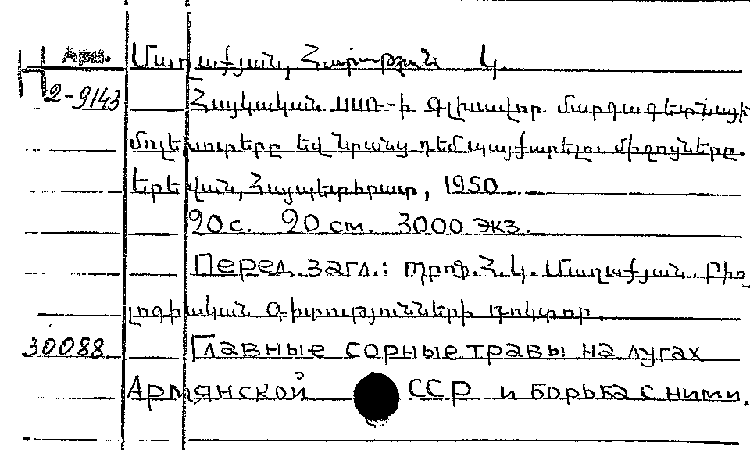 Арм.
Մաղաքյան, Հարություն Կ.
2-9143
Հայկական ՍՍՌ-ի գլխավոր մարգագետնային
մոլախոտերը եվ նրանց դեմ պայքարելու միջոցները.
Երեվան, Հայպետհրատ, 1950
20 с. 20 см. 3000 экз.
Перед загл.: պրոֆ. Հ. Կ. Մաղաքյան. Բիո
լոգիական գիտությունների դոկտոր.
30088
Главные сорные травы на лугах
Армянской ССР и борьба с ними.